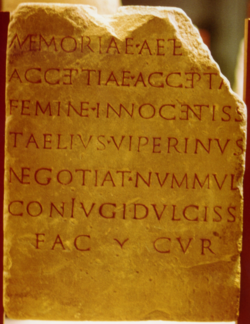 MEMORIAE·AETE
ACCEPTIAE·ACCEPTA
FEMINE·INNOCENTISS
TAELIVS·VIPERINVS
NEGOTIAT·NVMMVL
CONIVGIDVLCISS
FAC CVR